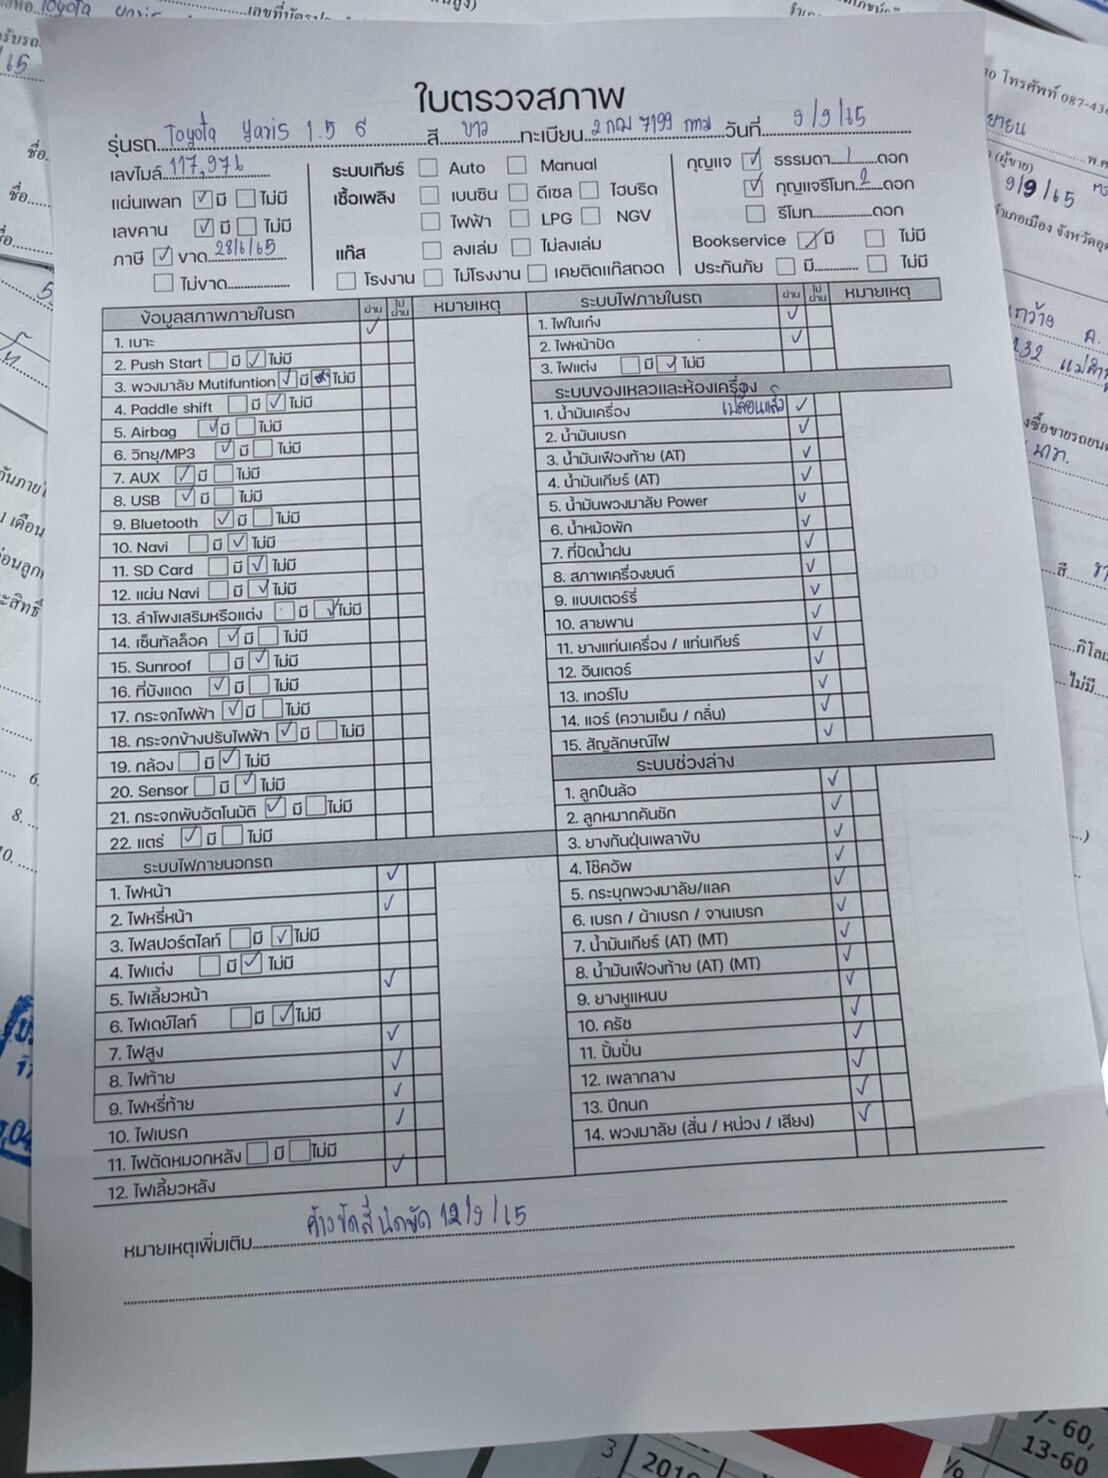 ใบตรวจสภาพ
รุ่นรถ Toyota Yaris 1.5 G สี ขาว ทะเบียน 2 กฌ 7199 กทม วันที่ 9/9/65
เลขไมล์ 117,976 ระบบเกียร์ Auto Manual กุญแจ ✓ ธรรมดา 1 ดอก
แผ่นเพลท ✓ มี ไม่มี เชื้อเพลิง เบนซิน ดีเซล ไฮบริด ✓ กุญแจรีโมท 2 ดอก
เลขคาน ✓ มี ไม่มี ไฟฟ้า LPG NGV รีโมท ดอก
ภาษี ✓ ขาด 28/6/65 แก๊ส ลงเล่ม ไม่ลงเล่ม Bookservice ✓ มี ไม่มี
ไม่ขาด โรงงาน ไม่โรงงาน เคยติดแก๊สถอด ประกันภัย มี ไม่มี
ข้อมูลสภาพภายในรถ ผ่าน ไม่ผ่าน หมายเหตุ
1. เบาะ ✓
2. Push Start มี ✓ ไม่มี
3. พวงมาลัย Mutifuntion ✓ มี ไม่มี
4. Paddle shift มี ✓ ไม่มี
5. Airbag ✓ มี ไม่มี
6. วิทยุ/MP3 ✓ มี ไม่มี
7. AUX ✓ มี ไม่มี
8. USB ✓ มี ไม่มี
9. Bluetooth ✓ มี ไม่มี
10. Navi มี ✓ ไม่มี
11. SD Card มี ✓ ไม่มี
12. แผ่น Navi มี ✓ ไม่มี
13. ลำโพงเสริมหรือแต่ง มี ✓ ไม่มี
14. เซ็นทัลล็อค ✓ มี ไม่มี
15. Sunroof มี ✓ ไม่มี
16. ที่บังแดด ✓ มี ไม่มี
17. กระจกไฟฟ้า ✓ มี ไม่มี
18. กระจกข้างปรับไฟฟ้า ✓ มี ไม่มี
19. กล้อง มี ✓ ไม่มี
20. Sensor มี ✓ ไม่มี
21. กระจกพับอัตโนมัติ ✓ มี ไม่มี
22. แตร่ ✓ มี ไม่มี
ระบบไฟภายนอกรถ
1. ไฟหน้า ✓
2. ไฟหรี่หน้า ✓
3. ไฟสปอร์ตไลท์ มี ✓ ไม่มี
4. ไฟแต่ง มี ✓ ไม่มี
5. ไฟเลี้ยวหน้า ✓
6. ไฟเดย์ไลท์ มี ✓ ไม่มี
7. ไฟสูง ✓
8. ไฟท้าย ✓
9. ไฟหรี่ท้าย ✓
10. ไฟเบรก ✓
11. ไฟตัดหมอกหลัง มี ไม่มี
12. ไฟเลี้ยวหลัง ✓
ระบบไฟภายในรถ ผ่าน ไม่ผ่าน หมายเหตุ
1. ไฟในเก๋ง ✓
2. ไฟหน้าปัด ✓
3. ไฟแต่ง มี ✓ ไม่มี
ระบบของเหลวและห้องเครื่อง
1. น้ำมันเครื่อง เปลี่ยนแล้ว ✓
2. น้ำมันเบรก ✓
3. น้ำมันเฟืองท้าย (AT) ✓
4. น้ำมันเกียร์ (AT) ✓
5. น้ำมันพวงมาลัย Power ✓
6. น้ำหม้อพัก ✓
7. ที่ปัดน้ำฝน ✓
8. สภาพเครื่องยนต์ ✓
9. แบบเตอร์รี่ ✓
10. สายพาน ✓
11. ยางแท่นเครื่อง / แท่นเกียร์ ✓
12. อินเตอร์ ✓
13. เทอร์โบ ✓
14. แอร์ (ความเย็น / กลิ่น) ✓
15. สัญลักษณ์ไฟ ✓
ระบบช่วงล่าง
1. ลูกปืนล้อ ✓
2. ลูกหมากคันชัก ✓
3. ยางกันฝุ่นเพลาขับ ✓
4. โช๊คอัพ ✓
5. กระบุกพวงมาลัย/แลค ✓
6. เบรก / ผ้าเบรก / จานเบรก ✓
7. น้ำมันเกียร์ (AT) (MT) ✓
8. น้ำมันเฟืองท้าย (AT) (MT) ✓
9. ยางหูแหนบ ✓
10. ครัช ✓
11. ปั้มปั่น ✓
12. เพลากลาง ✓
13. ปีกนก ✓
14. พวงมาลัย (สั่น / หน่วง / เสียง) ✓
หมายเหตุเพิ่มเติม ค้างขัดสี นัดขัด 12/9/65